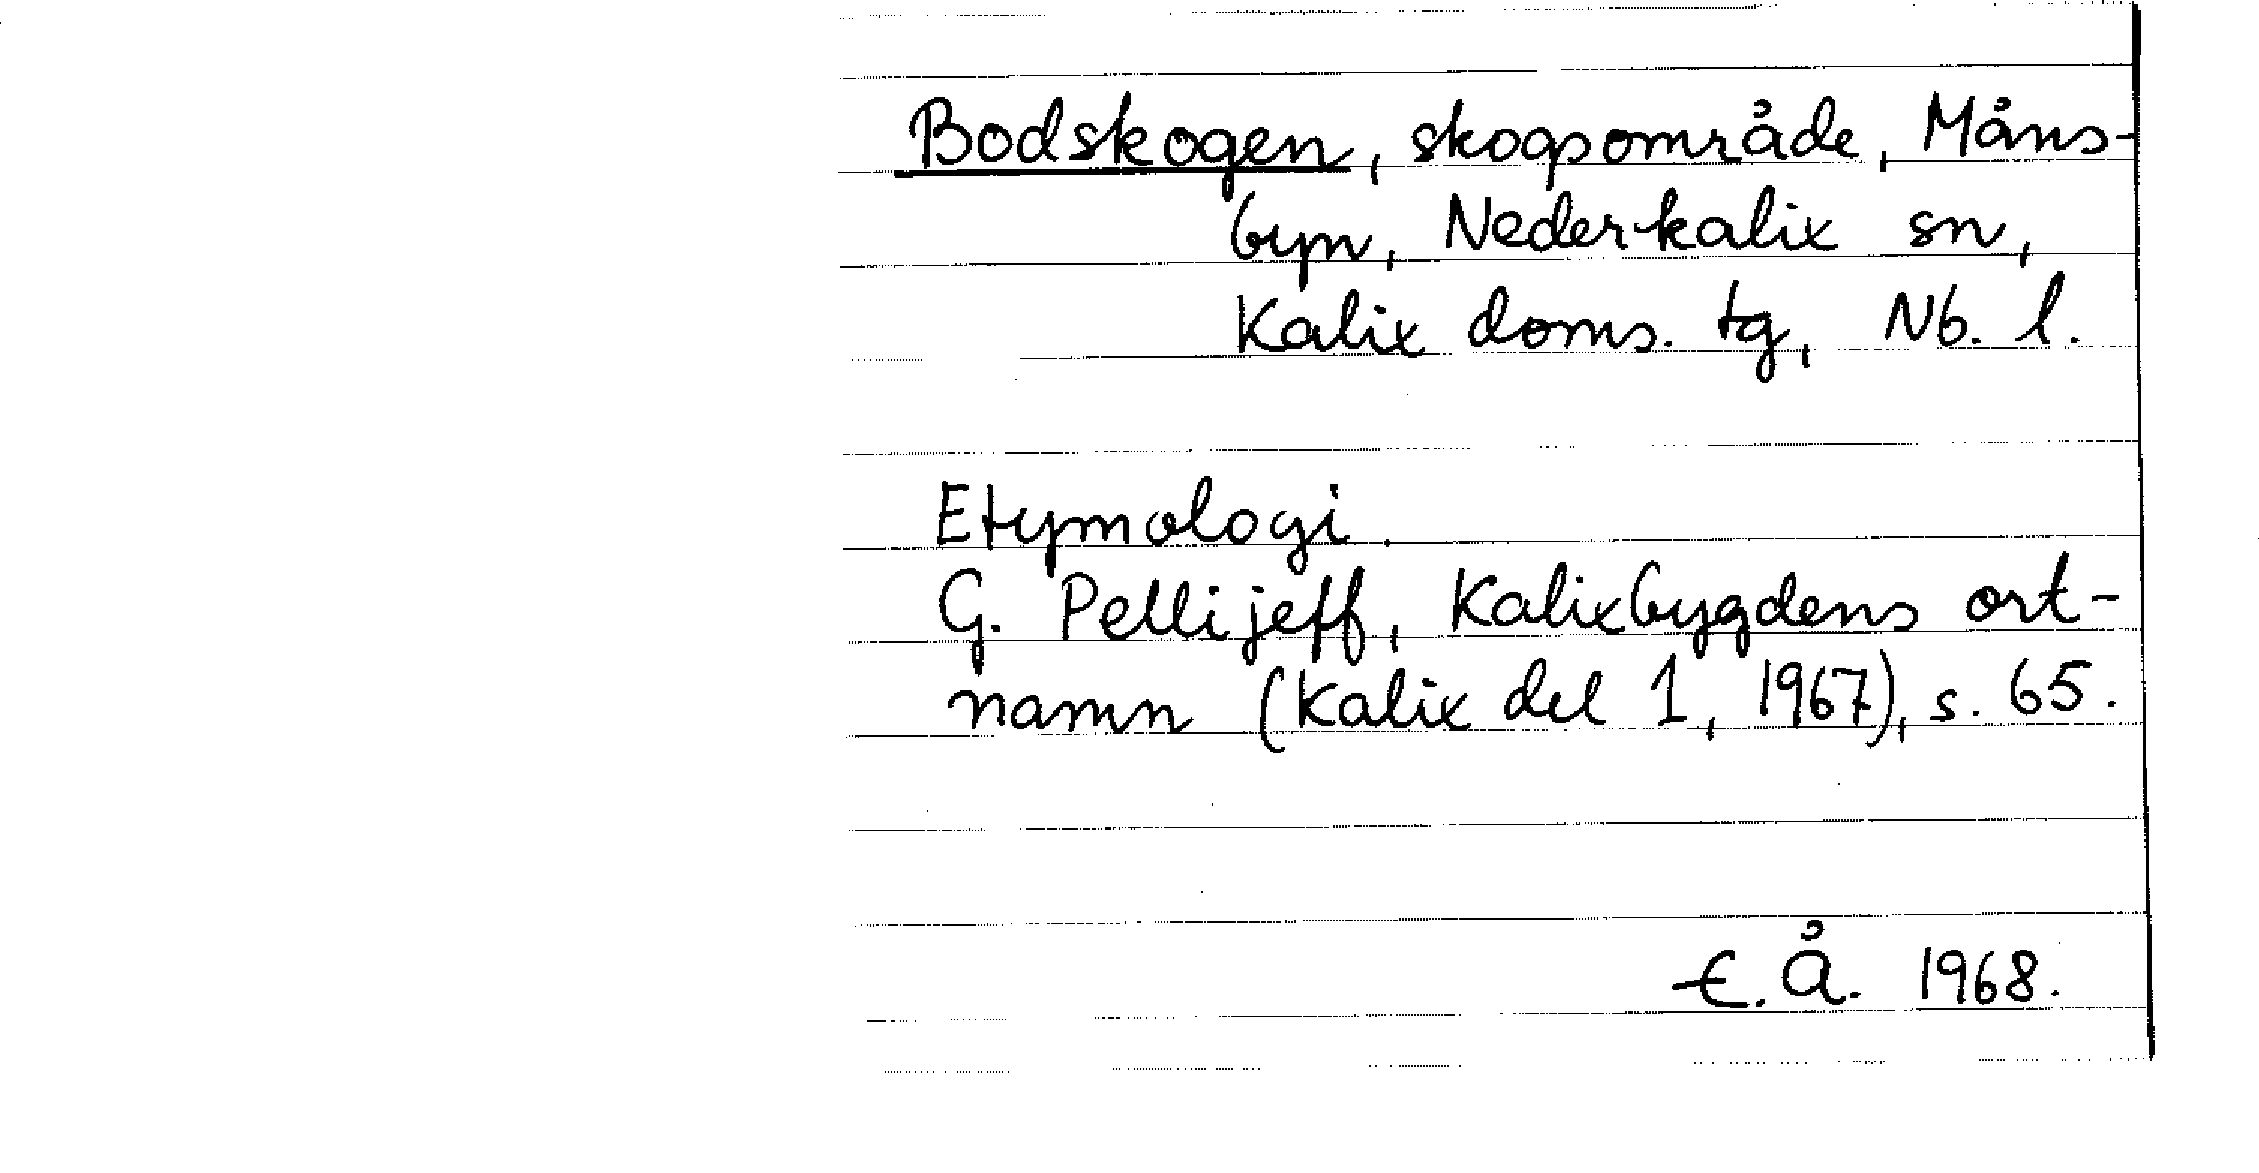 Bodskogen, skogsområde, Måns-
byn, Nederkalix sn,
Kalix doms. tg, Nb. l.
Etymologi.
G. Pellijeff, Kalixbygdens ort-
namn (Kalix del 1, 1967), s. 65.
E. Å. 1968.